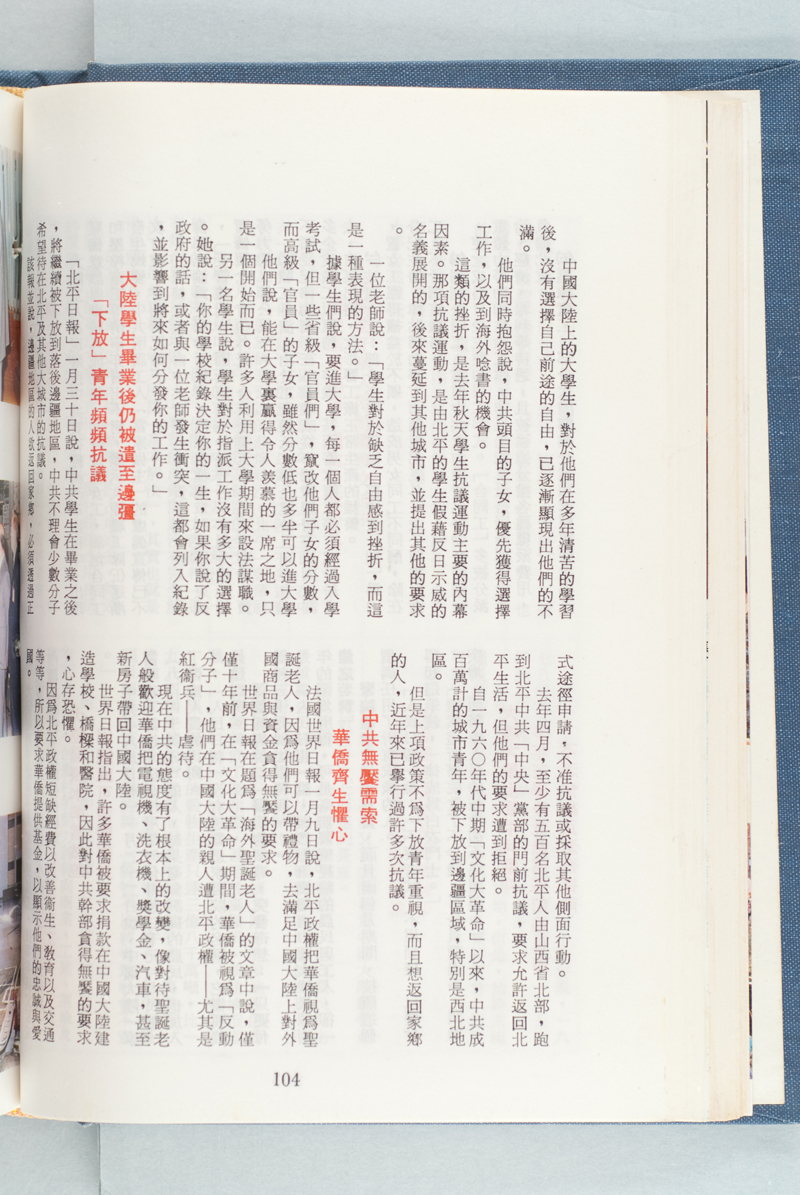 中國大陸上的大學生，對於他們在多年清苦的學習
後，沒有選擇自己前途的自由，已逐漸顯現出他們的不
滿。
他們同時抱怨說，中共頭目的子女，優先獲得選擇
工作，以及到海外唸書的機會。
這類的挫折，是去年秋天學生抗議運動主要的內幕
因素。那項抗議運動，是由北平的學生假藉反日示威的
名義展開的，後來蔓延到其他城市，並提出其他的要求
。
一位老師說：「學生對於缺乏自由感到挫折，而這
是一種表現的方法。」
據學生們說，要進大學，每一個人都必須經過入學
考試，但一些省級「官員們」，竄改他們子女的分數，
而高級「官員」的子女，雖然分數低也多半可以進大學
他們說，能在大學裏贏得令人羨慕的一席之地，只
是一個開始而已。許多人利用上大學期間來設法謀職。
另一名學生說，學生對於指派工作沒有多大的選擇
。她說：「你的學校紀錄決定你的一生，如果你說了反
政府的話，或者與一位老師發生衝突，這都會列入紀錄
，並影響到將來如何分發你的工作。」
大陸學生畢業後仍被遣至邊疆
「下放」青年頻頻抗議
「北平日報」一月三十日說，中共學生在畢業之後
，將繼續被下放到落後邊疆地區，中共不理會少數分子
希望待在北平及其他大城市的抗議。
該報並說，邊疆地區的人欲返回家鄉，必須透過正
式途徑申請，不准抗議或採取其他側面行動。
去年四月，至少有五百名北平人由山西省北部，跑
到北平中共「中央」黨部的門前抗議，要求允許返回北
平生活，但他們的要求遭到拒絕。
自一九六〇年代中期「文化大革命」以來，中共成
百萬計的城市青年，被下放到邊疆區域，特別是西北地
區。
但是上項政策不爲下放青年重視，而且想返回家鄉
的人，近年來已舉行過許多次抗議。
中共無饜需索
華僑齊生懼心
法國世界日報一月九日說，北平政權把華僑視爲聖
誕老人，因爲他們可以帶禮物，去滿足中國大陸上對外
國商品與資金貪得無饜的要求。
世界日報在題爲「海外聖誕老人」的文章中說，僅
僅十年前，在「文化大革命」期間，華僑被視爲「反動
分子」，他們在中國大陸的親人遭北平政權——尤其是
紅衞兵——虐待。
現在中共的態度有了根本上的改變，像對待聖誕老
人般歡迎華僑把電視機、洗衣機、獎學金、汽車，甚至
新房子帶回中國大陸。
世界日報指出，許多華僑被要求捐款在中國大陸建
造學校、橋樑和醫院，因此對中共幹部貪得無饜的要求
，心存恐懼。
因爲北平政權短缺經費以改善衞生、教育以及交通
等等，所以要求華僑提供基金，以顯示他們的忠誠與愛
國。
104